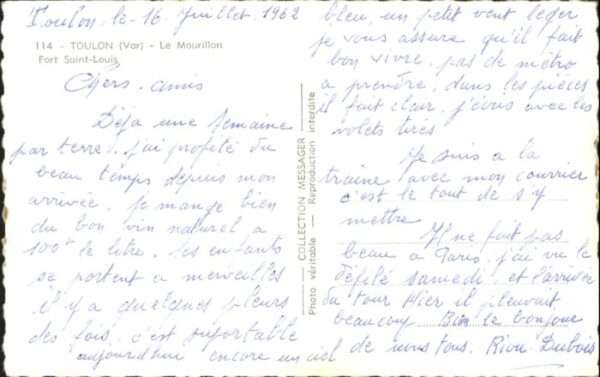 Toulon. le 16 Juillet 1962
114 - TOULON (Var) - Le Mourillon
Fort Saint-Louis
Chers amis
Déja une semaine
par terre. j'ai profité du
beau temps depuis mon
arrivée. je mange bien
du bon vin naturel a
100f le litre. les enfants
se portent a merveilles
il y a quelques pleurs
des fois. c'est suportable
aujourd'hui encore un ciel
COLLECTION MESSAGER
Photo véritable — Reproduction interdite
bleu, un petit vent leger,
je vous assure qu'il fait
bon vivre. pas de métro
a prendre. dans les pièces
il fait clair. j'écris avec les
volets tirés
Je suis a la
traine avec mon courrier
c'est le tout de s'y
mettre
Il ne fait pas
beau a Paris, j'ai vu le
défilé samedi. et l'arrivée
du Tour Hier il pleuvait
beaucoup Bien le bonjour
de nous tous. Riou Dubois